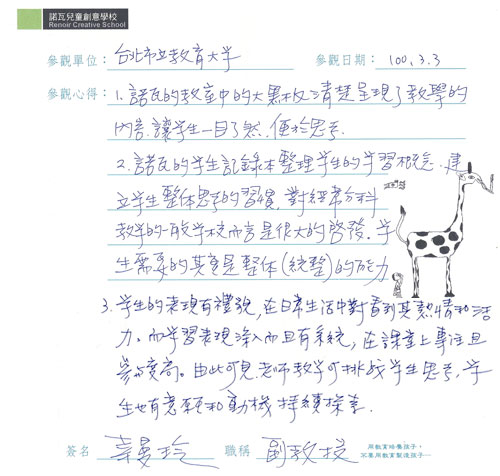 諾瓦兒童創意學校
Renoir Creative School
參觀單位：台北市立教育大學 參觀日期：100.3.3
參觀心得：1.諾瓦的教室中的大黑板清楚呈現了教學的
內容.讓學生一目了然.便於思考.
2.諾瓦的學生記錄本整理學生的學習概念.建
立學生整体思考的習慣.對經常分科
教學的一般學校而言是很大的啓發.学
生需要的其實是整体(統整)的能力.
3.学生的表現有禮貌,在日常生活中對看到其熱情和活
力。而学習表現深入而且有系統,在課堂上專注且
參與度高。由此可見.老師教学可挑战学生思考,学
生也有意願和動機持續探索.
簽名 職稱 副教授
用教育培養孩子，
不要用教育製造孩子…